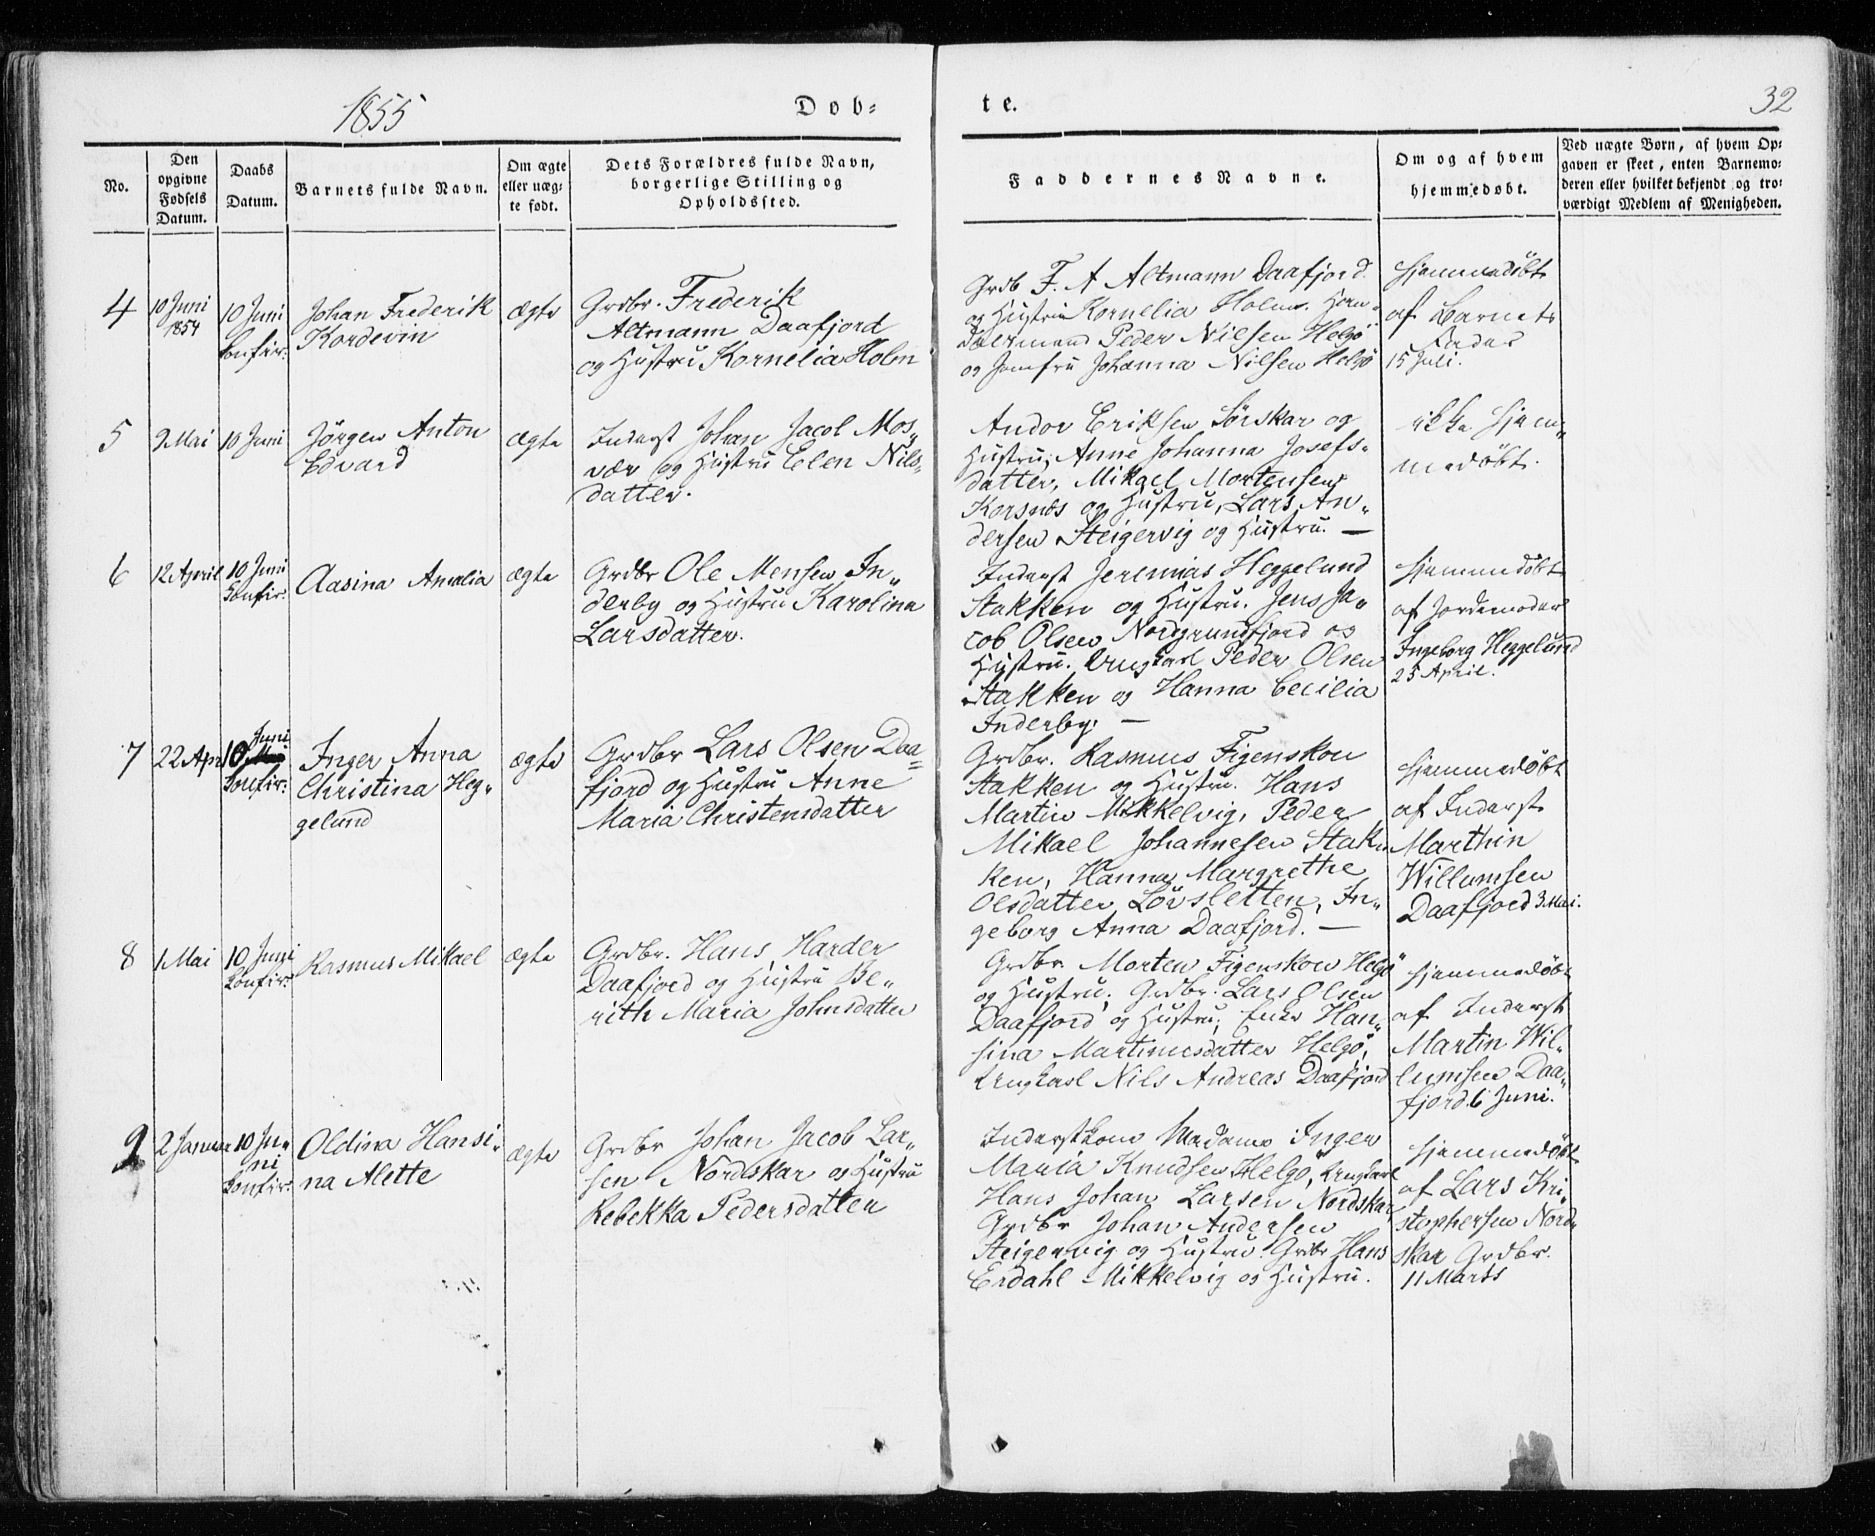 1855
Døb-
te.
32
No.
Den
opgivne
Fødsels
Datum.
Daabs
Datum.
Barnets fulde Navn.
Om ægte
eller uæg-
te født.
Dets Forældres fulde Navn,
borgerlige Stilling og
Opholdssted.
Faddernes Navne.
Om og af hvem
hjemmedøbt.
Ved uægte Børn, af hvem Op-
gaven er skeet, enten Barnemo-
deren eller hvilket bekjendt og tro-
værdigt Medlem af Menigheden.
4
10 Juni
1854
10 Juni
Confir:
Johan Frederik
Kordevin
ægte
Grdbr. Frederik
Altmann Daafjord
og Hustru Kornelia Holm
Grdb F. A Altmann Daafjord
og Hustru Kornelia Holm.
Peder Nilsen Helgö
og Jomfru Johanna Nilsen Helgö
Hjemmedøbt
af Barnets
Fader
15 Juli.
5
2 Mai
10 Juni
Jørgen Anton
Edvard
ægte
Inderst Johan Jacob Mos-
vær og Hustru Elen Nils-
datter.
Andor Eriksen Sörskar og
Hustru, Anne Johanna Josefs-
datter, Mikael Mortensen
Korsnæs og Hustru, Lars An-
dersen Steigervig og Hustru. —
ikke Hjem-
medøbt.
6
12 April
10 Juni
Confir:
Aasina Amalia
ægte
Grdbr Ole Mensen In-
derby og Hustru Karolina
Larsdatter.
Inderst Jeremias Heggelund
Stakken og Hustru. Jens Ja-
cob Olsen Nordgrundfjord og
Hustru. Ungkarl Peder Olsen
Stakken og Hanna Cecilia
Inderby. —
Hjemmedøbt
af Jordemoder
Ingeborg Heggelund
25 April.
7
22 Apr
Juni
10
Confir:
Inger Anna
Christina Heg-
gelund
ægte
Grdbr Lars Olsen Daa-
fjord og Hustru Anne
Maria Christensdatter
Grdbr. Rasmus Figenskou
Stakken og Hustru. Hans
Martin Mikkelvig, Peder
Mikael Johannesen Stak-
ken, Hanna Margrethe
Olsdatter Løvsletten, In-
geborg Anna Daafjord. —
Hjemmedøbt
af Inderst
Marthin
Willumsen
Daafjord 3. Mai.
8
1 Mai
10 Juni
Confir:
Rasmus Mikael
ægte
Grdbr. Hans Harder
Daafjord og Hustru Be-
rith Maria Johnsdatter
Grdbr Morten Figenskou Helgö
og Hustru; Grdbr. Lars Olsen
Daafjord og Hustru; Enke Han-
sina Martinusdatter Helgö,
Ungkarl Nils Andreas Daafjord
Hjemmedøbt
af Inderst
Martin Wil-
lumsen Daa-
fjord. 6 Juni.
9
2 Januar
10 Ju-
ni
Confir:
Oldina Hansi-
na Alette
ægte
Grdbr Johan Jacob Lar-
sen Nordskar og Hustru
Rebekka Pedersdatter
Inderstkone Madame Inger
Maria Knudsen Helgö, Ungkarl
Hans Johan Larsen Nordskar,
Grdbr Johan Andersen
Steigervig og Hustru. Grdbr Hans
Erdahl Mikkelvig og Hustru.
Hjemmedøbt
af Lars Kri-
stophersen Nord-
skar Grdbr.
11 Marts